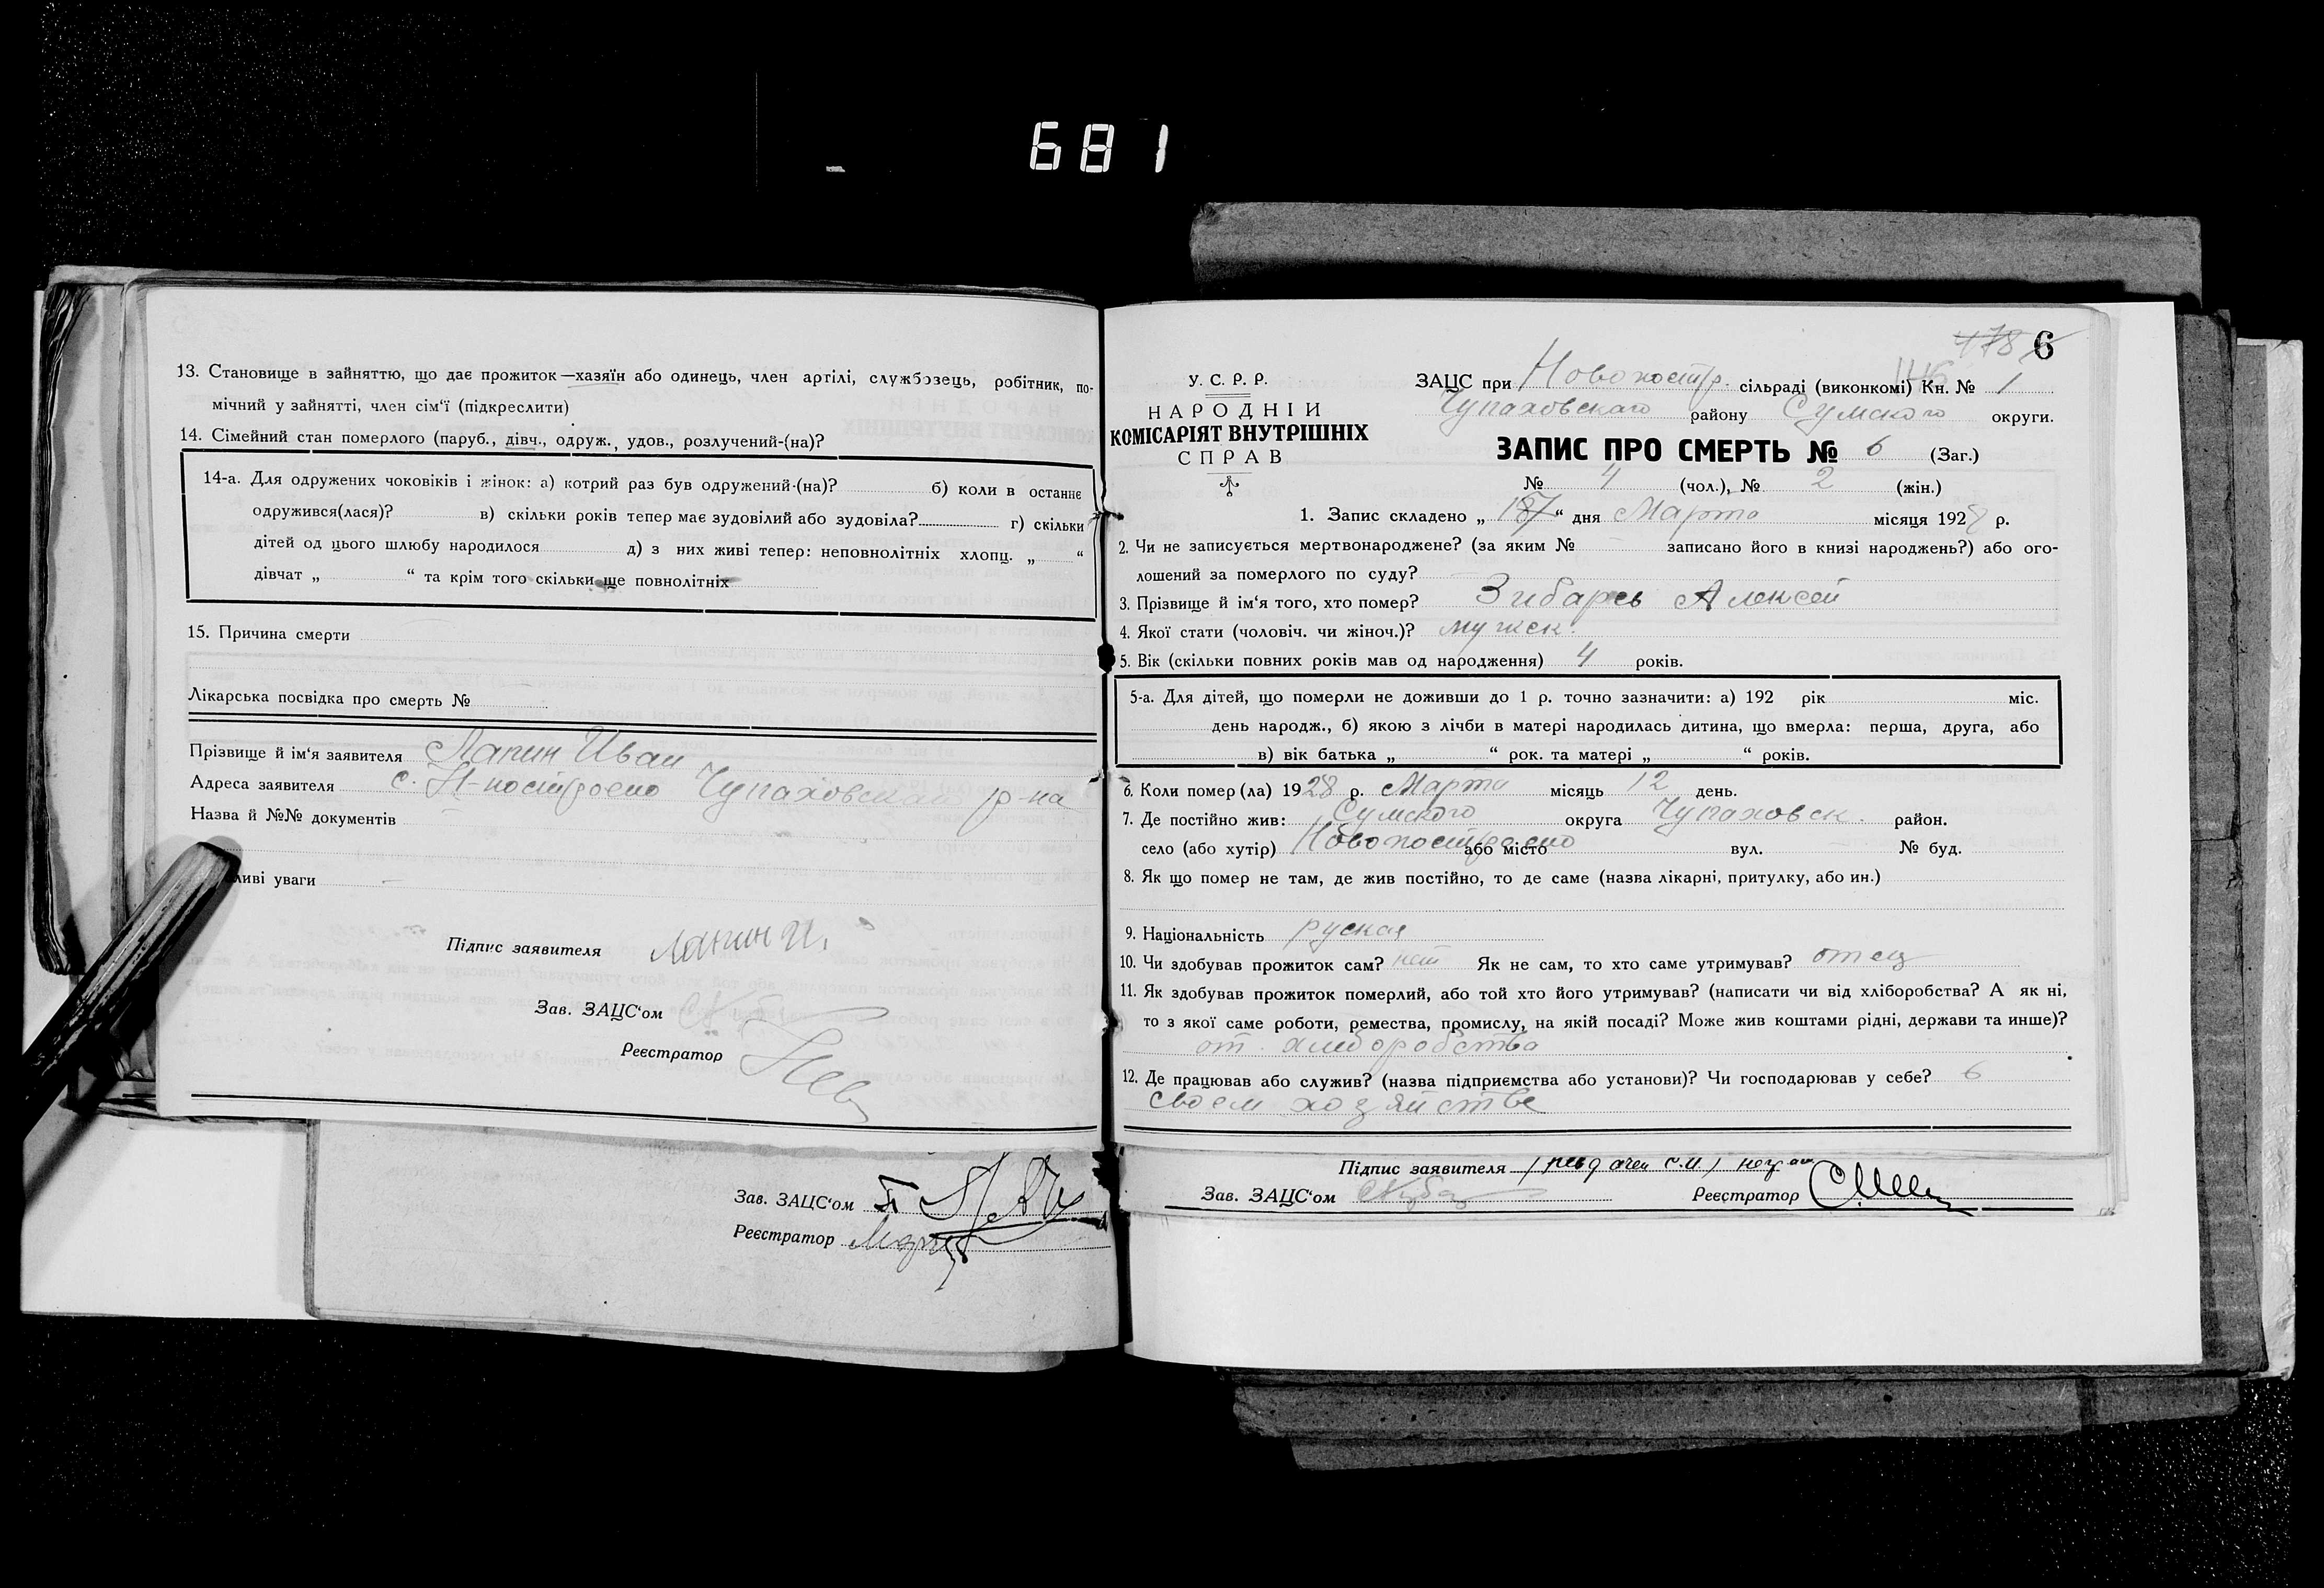 681
13. Становище в зайняттю, що дає прожиток—хазяїн або одинець, член артілі, службовець, робітник, по-
мічний у зайнятті, член сім'ї (підкреслити)
14. Сімейний стан померлого (паруб., дівч., одруж., удов., розлучений-(на)?
14-а. Для одружених чоковіків і жінок: а) котрий раз був одружений-(на)? б) коли в останнє
одружився(лася)? в) скільки років тепер має зудовілий або зудовіла? г) скільки
дітей од цього шлюбу народилося д) з них живі тепер: неповнолітніх хлопц. „ “
дівчат „ “ та крім того скільки ще повнолітніх
15. Причина смерти
Лікарська посвідка про смерть №
Прізвище й ім'я заявителя Лапин Иван
Адреса заявителя с. Н-построено Чупаховская р-на
Назва й №№ документів
ливі уваги
Підпис заявителя Лапин И.
Зав. ЗАЦС'ом
Реєстратор
Зав. ЗАЦС'ом
Реєстратор
478 6
146
У. С. Р. Р.
НАРОДНІЙ
КОМІСАРІЯТ ВНУТРІШНІХ
СПРАВ
ЗАЦС при Новопостр. сільраді (виконкомі) Кн. № 1
Чупаховскаго району Сумского округи.
ЗАПИС ПРО СМЕРТЬ № 6 (Заг.)
№ 4 (чол.), № 2 (жін.)
1. Запис складено „ “ дня Марта місяця 1928 р.
2. Чи не записується мертвонароджене? (за яким № записано його в книзі народжень?) або ого-
лошений за померлого по суду?
3. Прізвище й ім'я того, хто помер? Зибарев Алексей
4. Якої стати (чоловіч. чи жіноч.)? мужск.
5. Вік (скільки повних років мав од народження) 4 років.
5-а. Для дітей, що померли не доживши до 1 р. точно зазначити: а) 192 рік міс.
день народж., б) якою з лічби в матері народилась дитина, що вмерла: перша, друга, або
в) вік батька „ “ рок. та матері „ “ років.
6. Коли помер (ла) 1928 р. Марта місяць 12 день.
7. Де постійно жив: Сумского округа Чупаховск. район.
село (або хутір) Новопостроено або місто вул. № буд.
8. Як що помер не там, де жив постійно, то де саме (назва лікарні, притулку, або ин.)
9. Національність руская
10. Чи здобував прожиток сам? нет Як не сам, то хто саме утримував? отец
11. Як здобував прожиток померлий, або той хто його утримував? (написати чи від хліборобства? А як ні,
то з якої саме роботи, ремества, промислу, на якій посаді? Може жив коштами рідні, держави та инше)?
от хлеборобства
12. Де працював або служив? (назва підприємства або установи)? Чи господарював у себе? в
своем хозяйстве
Підпис заявителя
Зав. ЗАЦС'ом Реєстратор